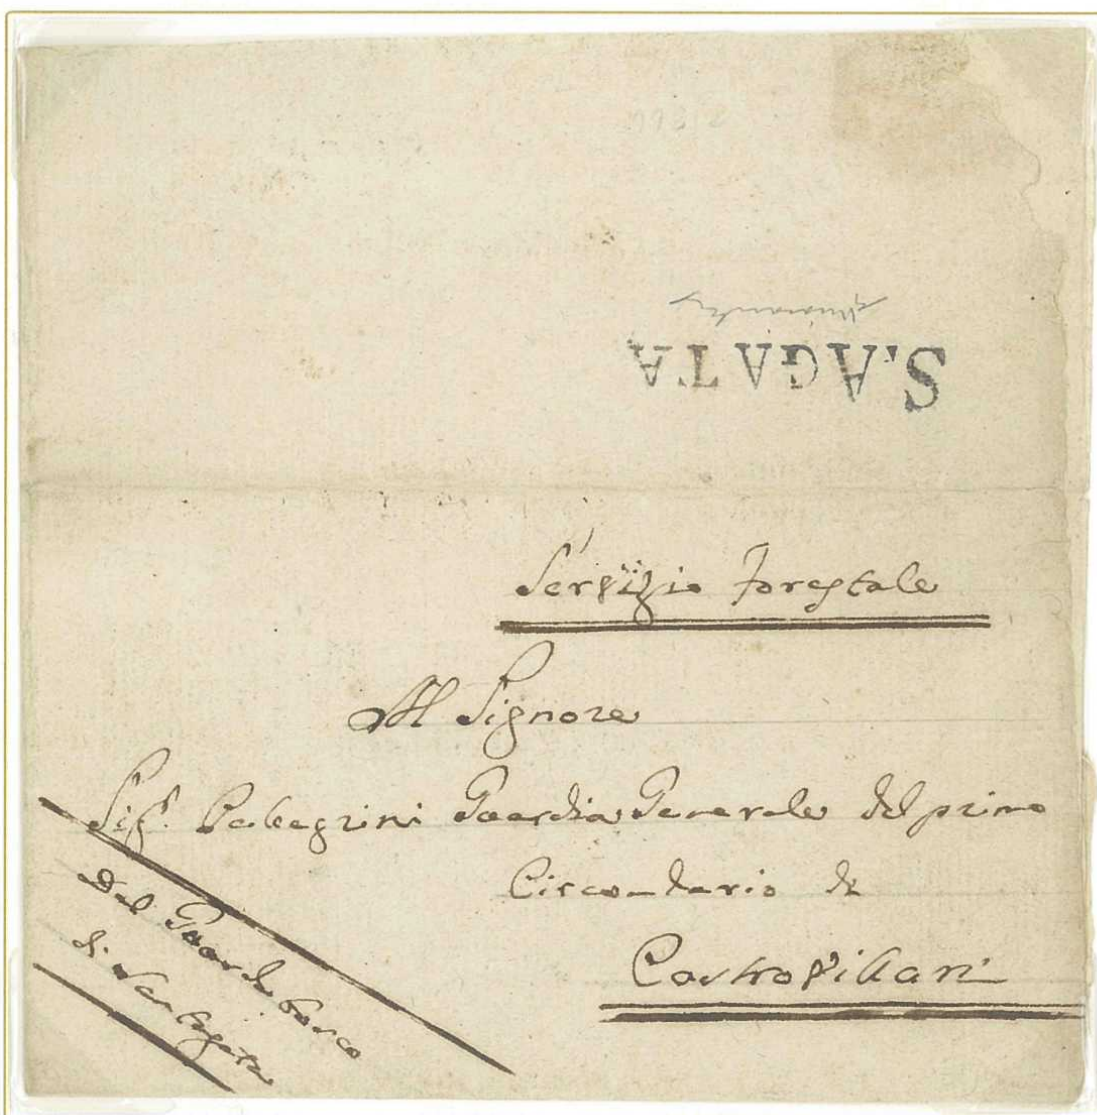 S.AGATA
Servizio Forestale
Al Signore
Sig.r Pellegrini Guardia Generale del primo
Circondario di
Castrovillari
Dal Guardabosco
di Sant'Agata